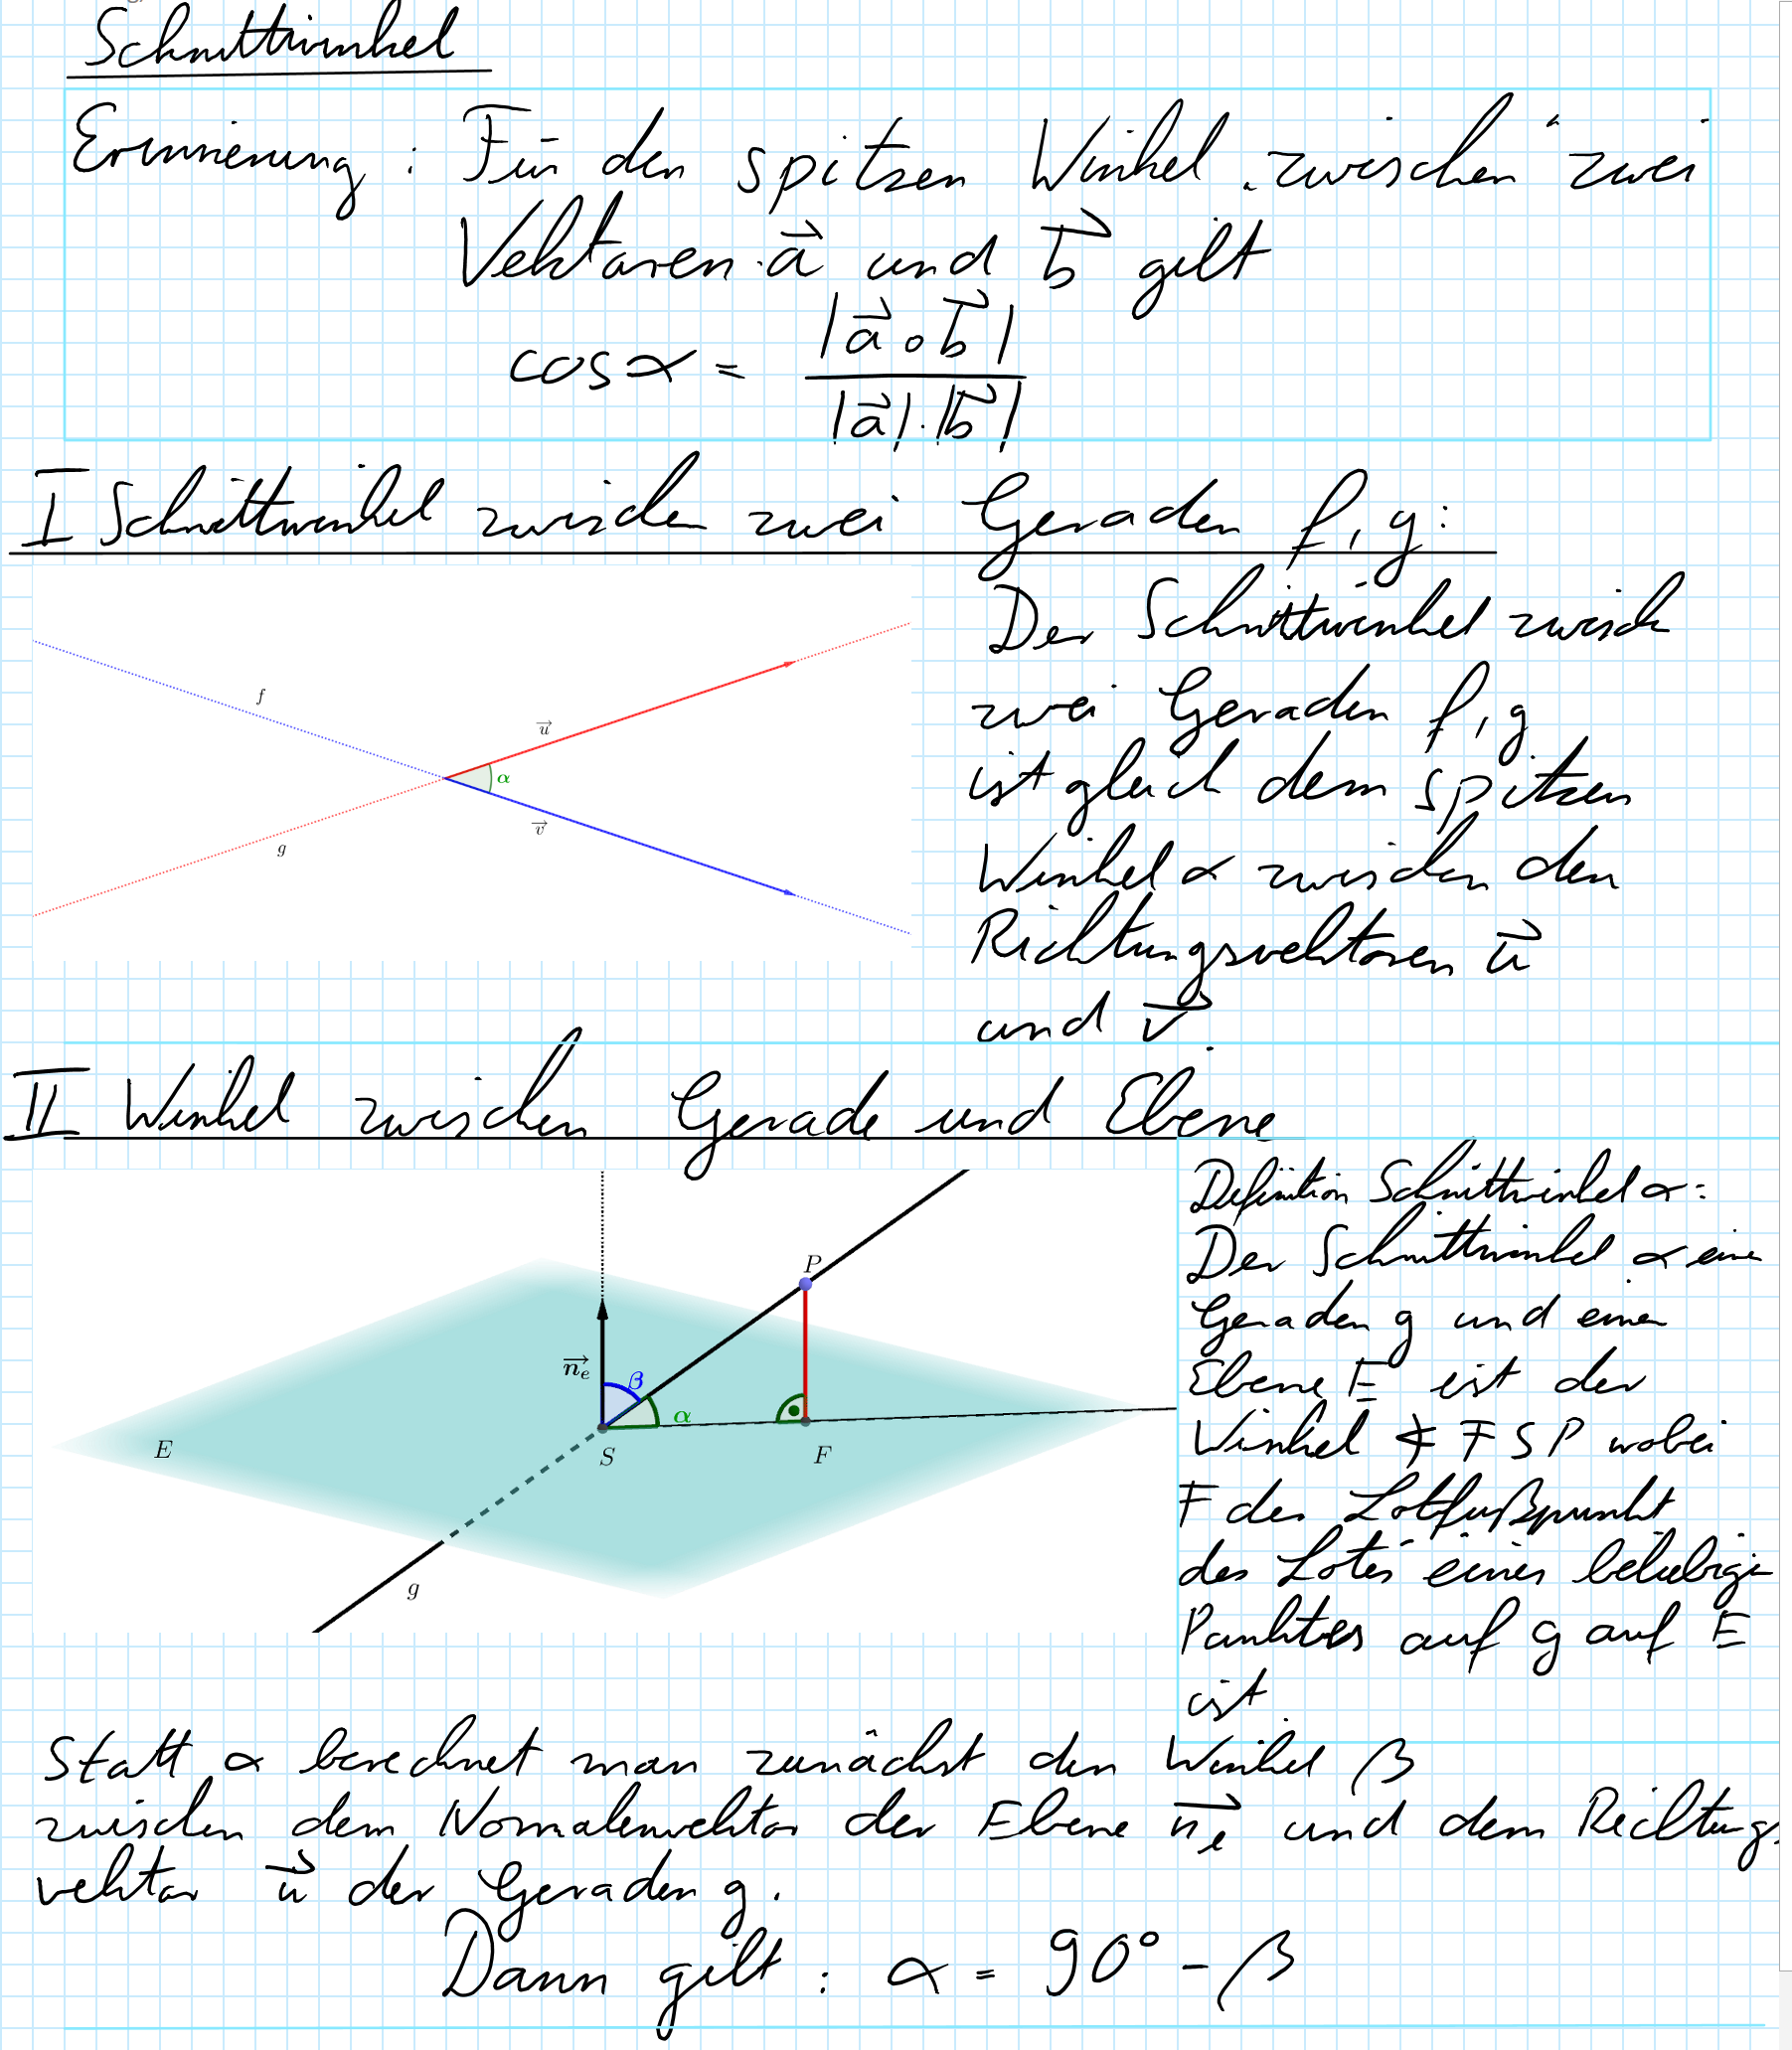 Schnittwinkel
Erinnerung : Für den spitzen Winkel zwischen zwei
Vektoren a⃗ und b⃗ gilt
cos α = |a⃗ ∘ b⃗| / |a⃗| · |b⃗|
I Schnittwinkel zwischen zwei Geraden f, g:
f
u⃗
α
v⃗
g
Der Schnittwinkel zwisch
zwei Geraden f, g
ist gleich dem spitzen
Winkel α zwischen den
Richtungsvektoren u⃗
und v⃗.
II Winkel zwischen Gerade und Ebene
P
n⃗ₑ
β
α
E
S
F
g
Definition Schnittwinkel α:
Der Schnittwinkel α einer
Geraden g und einer
Ebene E ist der
Winkel ∢ FSP wobei
F der Lotfußpunkt
des Lotes eines beliebigen
Punktes auf g auf E
ist.
Statt α berechnet man zunächst den Winkel β
zwischen dem Normalenvektor der Ebene n⃗ₑ und dem Richtungs
vektor u⃗ der Geraden g.
Dann gilt : α = 90° - β